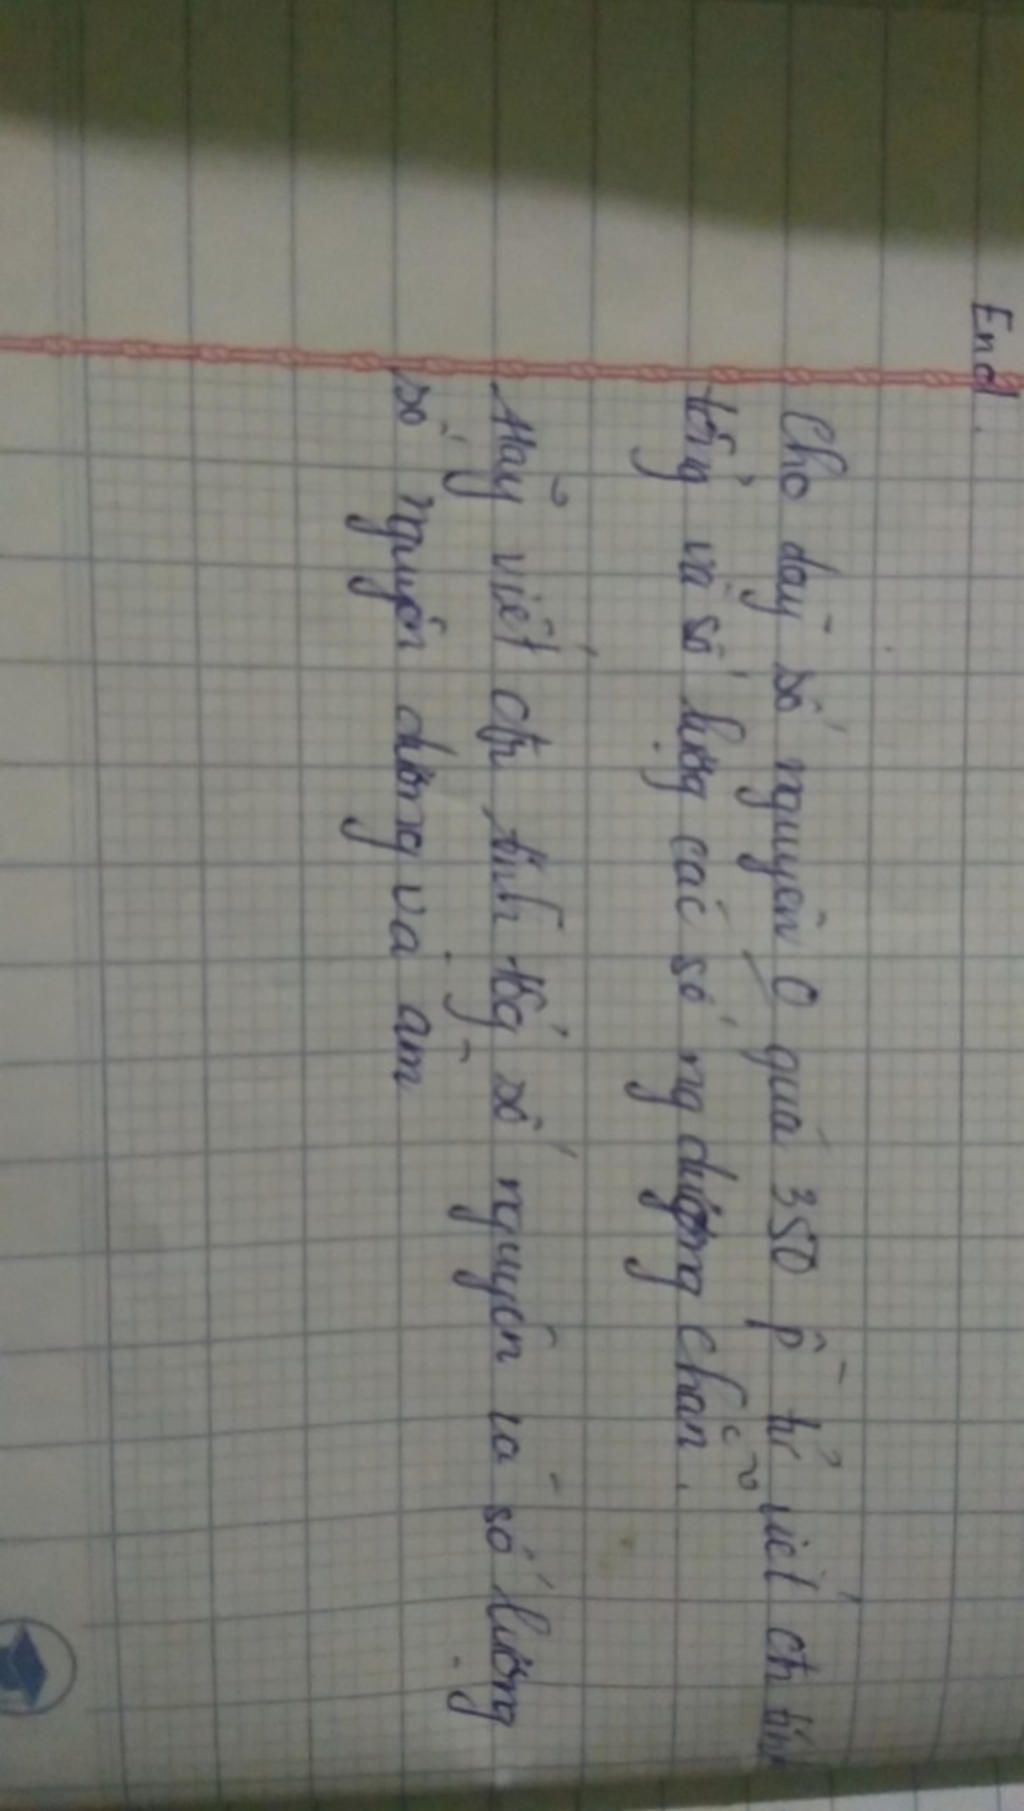 End.
Cho dãy số nguyên O quá 350 p tử viết ctr tính
tổng và số lượng các số ng dương chẵn.
Hãy viết ctr tính tổg số nguyên và số lượng
số nguyên dương và âm